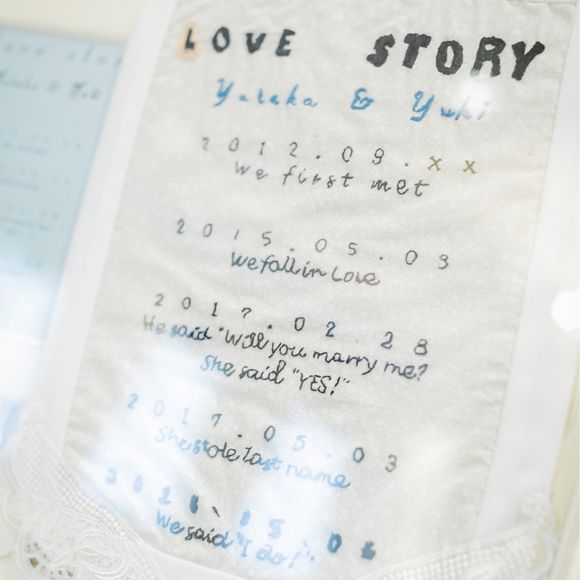 LOVE STORY
Yutaka & Yuki
2012.09.xx
We first met
2015.05.03
We fall in Love
2017.02.28
He said "Will you marry me?
She said "YES!"
2017.05.03
She stole last name
We said "I do!"